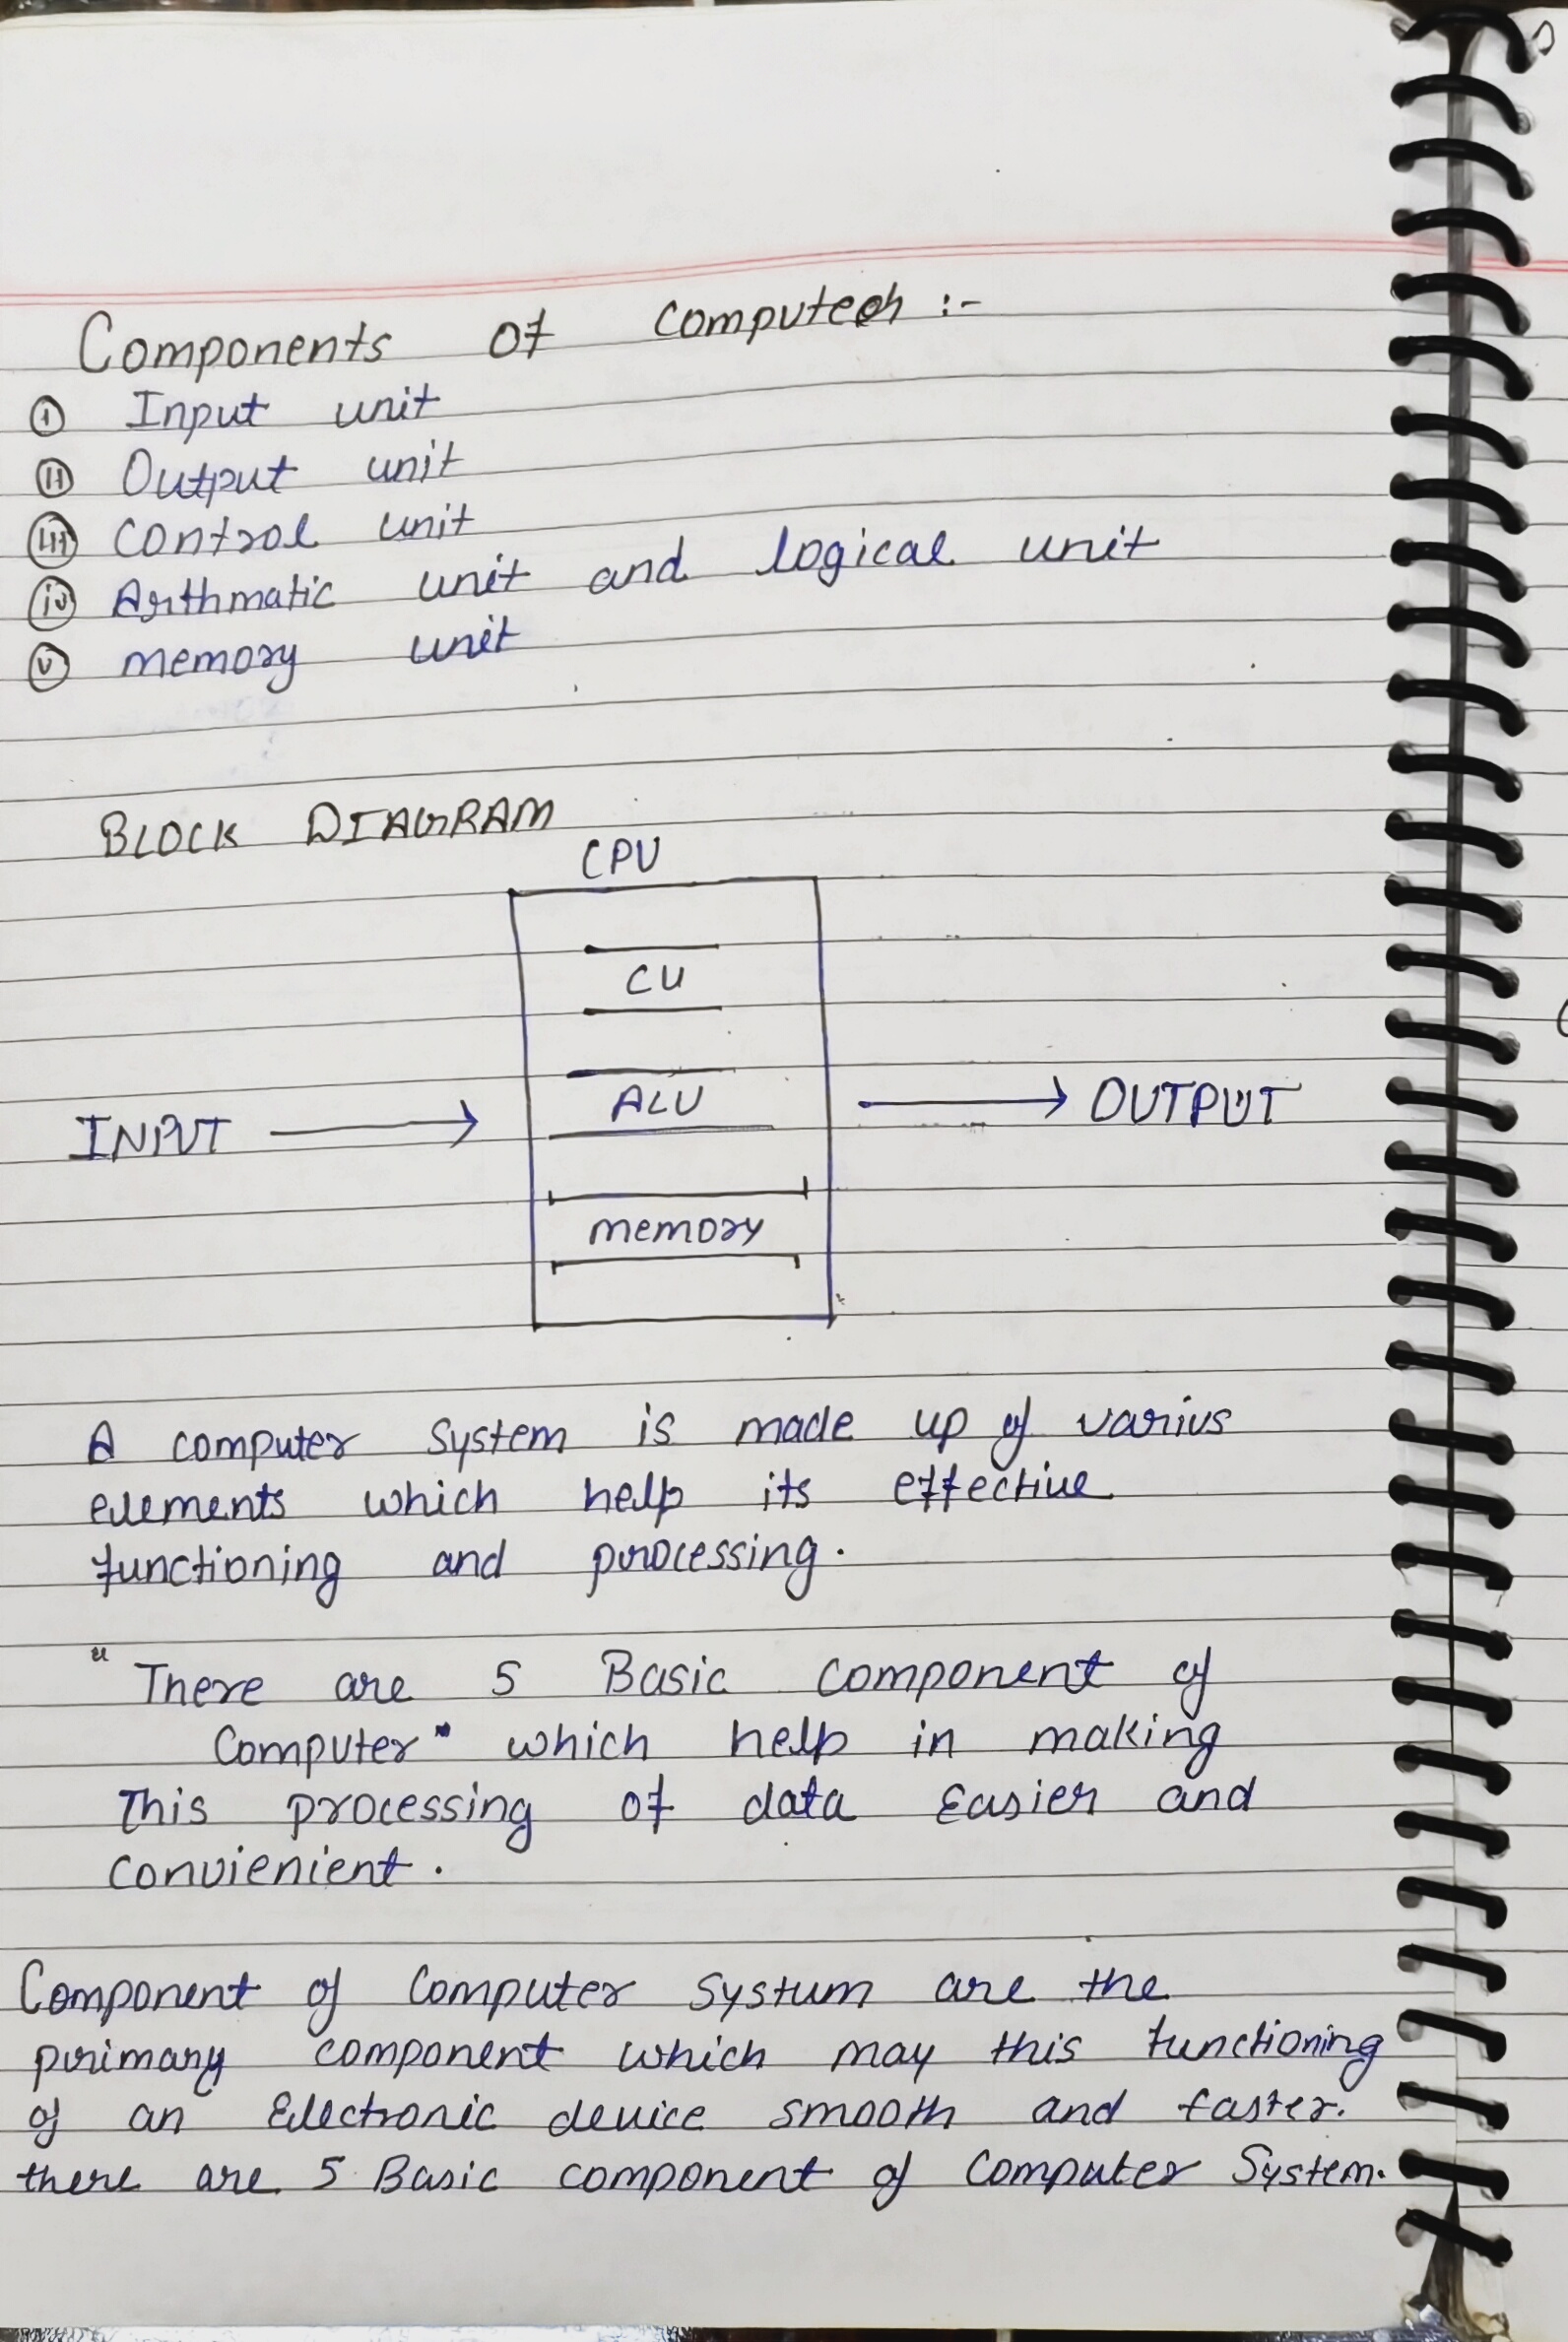 Components of Computer :-
(i) Input unit
(ii) Output unit
(iii) Control unit
(iv) Arithmatic unit and logical unit
(v) memory unit
BLOCK DIAGRAM
CPU
CU
ALU
INPUT → → OUTPUT
memory
A computer system is made up of varius
elements which help its effective
functioning and processing.
"There are 5 Basic component of
Computer" which help in making
This processing of data Easier and
convienient.
Component of Computer systum are the
primary component which may this functioning
of an Electronic device smooth and faster.
there are 5 Basic component of Computer System.